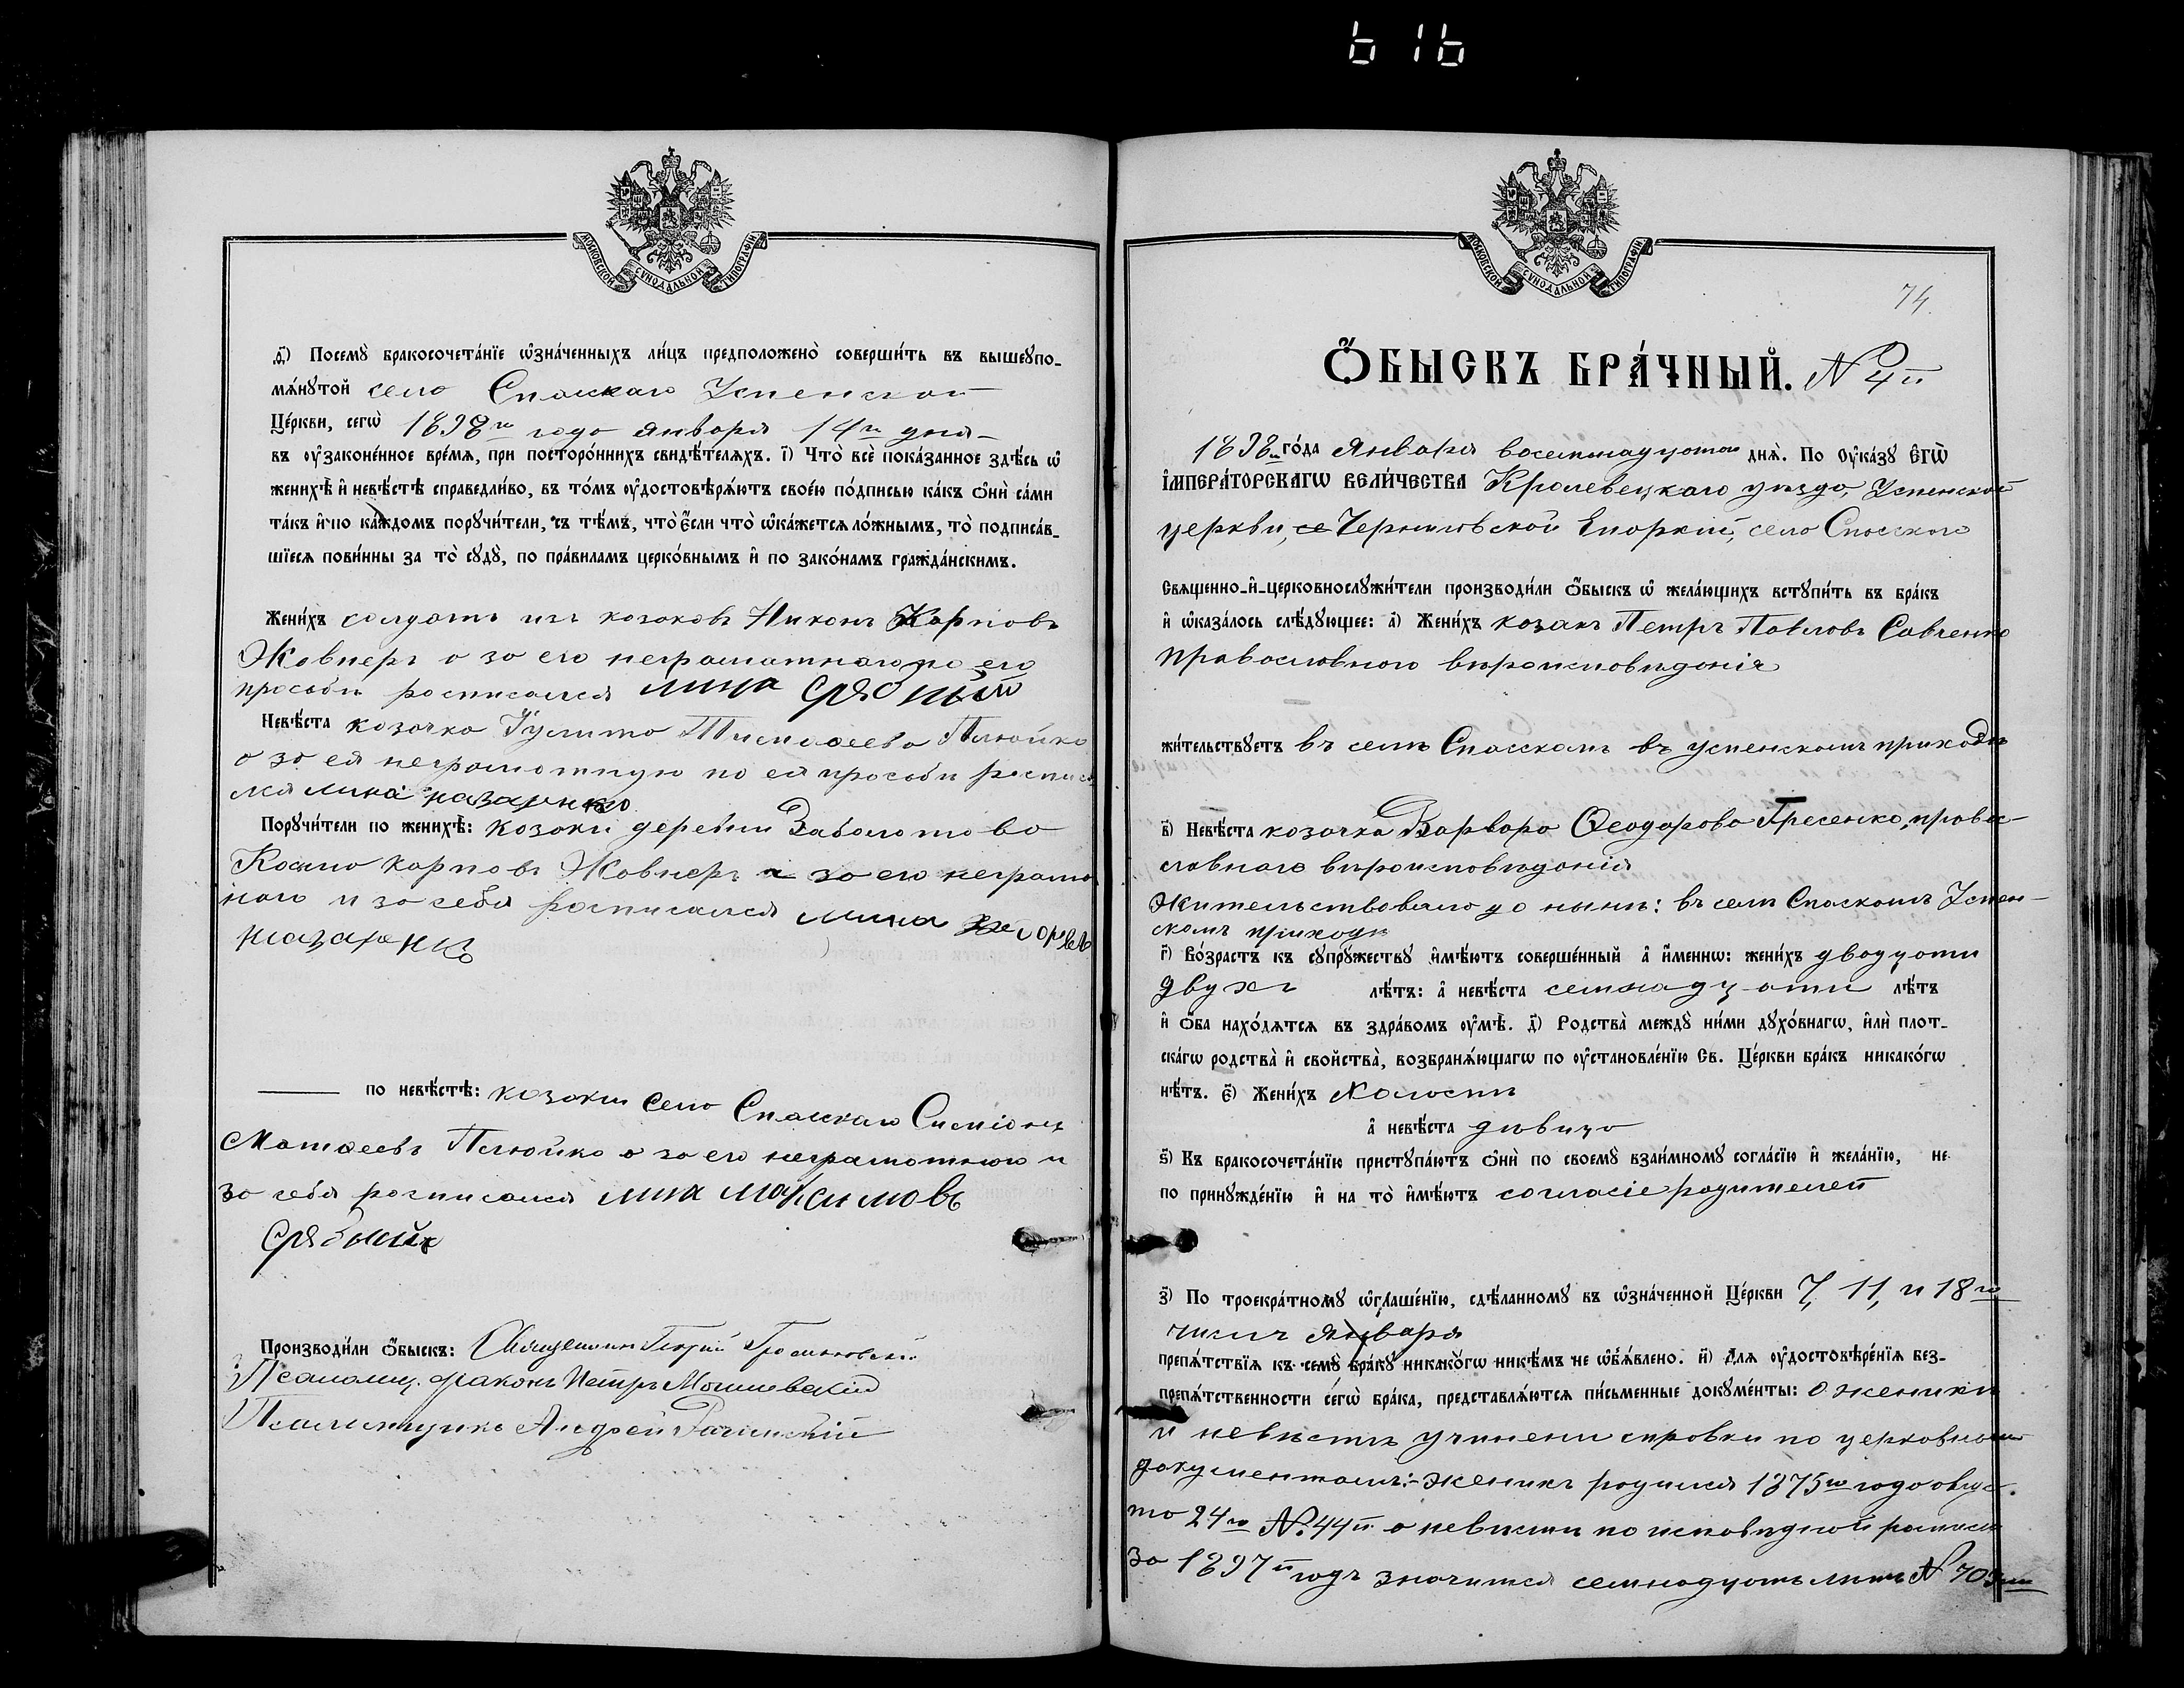 МОСКОВСКОЙ СѴНОДАЛЬНОЙ ТИПОГРАФІИ
д҃і) Посемꙋ̀ бракосочета́нїе ѡ҆зна́ченныхъ ли́цъ предположено̀ соверши́ть въ вышеꙋпо-
мѧ́нꙋтой село Спасскаго Успенской
Це́ркви, сегѡ̀ 1898го года Января 14го дня
въ ᲂу҆законе́нное вре́мѧ, при посторо́ннихъ свидѣ́телѧхъ. і҃) Что̀ всѐ пока́занное здѣ́сь ѡ҆
женихѣ̀ и҆ невѣ́стѣ справедли́во, въ то́мъ ᲂу҆достовѣрѧ́ютъ свое́ю по́дписью ка́къ ѻ҆нѝ са́ми
та́къ и҆ по ка́ждомъ порꙋчи́тели, съ тѣ́мъ, что̀ є҆́сли что̀ ѡ҆ка́жетсѧ ло́жнымъ, то̀ подписа́в-
шїесѧ пови́нны за то̀ сꙋдꙋ̀, по пра́виламъ церко́внымъ и҆ по зако́намъ гражда́нскимъ.
Жени́хъ солдатъ изъ козаковъ Никонъ Карповъ
Жовнеръ а за его неграматнаго по его
прозьби росписался Мина Срябный
Невѣ́ста козачка Іулита Тимофеева Плюйко
а за ея неграмотную по ея прозьби росписа
лся Мина Назаренко
Порꙋчи́тели по женихѣ̀: козаки деревни Заболотово
Косма Карповъ Жовнеръ а за его неграмот
наго и за себя росписался Мина
Назаренко
по невѣ́стѣ: козаки село Спасскаго Симіонъ
Матфеевъ Плюйко а за его неграмотного и
за себя росписался Мина Максимовъ
Срябный
Производи́ли ѻ҆́быскъ: Священникъ Георгій
Псаломщ. діаконъ Петръ
Псаломщикъ Андрей
МОСКОВСКОЙ СѴНОДАЛЬНОЙ ТИПОГРАФІИ
74
Ѻ҆́БЫСКЪ БРА́ЧНЫЙ. № 4й
1898го го́да Января восемнадцатаго днѧ̀. По ᲂу҆ка́зꙋ Є҆гѡ̀
І҆мпера́торскагѡ Вели́чества Кролевецкаго уѣзда, Успенской
церкви, Черниговской Епархіи, село Спасского
Свѧщенно-и҆-церковнослꙋжи́тели производи́ли ѻ҆́быскъ ѡ҆ жела́ющихъ встꙋпи́ть въ бра́къ
и҆ ѡ҆каза́лось слѣ́дꙋющее: а҃) Жени́хъ козакъ Петръ Павловъ Савченко
православного вѣроисповѣданія
жи́тельствꙋетъ въ селѣ Спасскомъ въ успенскомъ приходѣ
в҃) Невѣ́ста козачка Варвара Феодорова Гресенко, право-
славнаго вѣроисповѣданія
Жительствовала до нынѣ: въ селѣ Спаскомъ Успен-
скомъ приходѣ
г҃) Во́зрастъ къ сꙋпрꙋ́жествꙋ и҆мѣ́ютъ соверше́нный а҆ и҆́меннѡ: жени́хъ двадцати
двухъ лѣ́тъ: а҆ невѣ́ста семнадцати лѣ́тъ
и҆ ѻ҆́ба нахо́дѧтсѧ въ здра́вомъ ᲂу҆мѣ̀. д҃) Родства̀ междꙋ̀ ни́ми дꙋхо́внагѡ, и҆лѝ плот-
ска́гѡ родства̀ и҆ свойства̀, возбранѧ́ющагѡ по ᲂу҆становле́нїю Св. Це́ркви бра́къ никако́гѡ
нѣ́тъ. є҃) Жени́хъ Холостъ
а҆ невѣ́ста дѣвица
ѕ҃) Къ бракосочета́нїю пристꙋпа́ютъ ѻ҆нѝ по своемꙋ̀ взаи́мномꙋ согла́сїю и҆ жела́нїю, не
по принꙋжде́нїю и҆ на то̀ и҆мѣ́ютъ согласіе родителей
з҃) По троекра́тномꙋ ѡ҆глаше́нїю, сдѣ́ланномꙋ въ ѡ҆зна́ченной Це́ркви 7, 11, и 18го
числъ января
препѧ́тствїѧ къ семꙋ̀ бра́кꙋ никако́гѡ никѣ́мъ не ѡ҆б̾ѧ́влено. и҃) Длѧ ᲂу҆достовѣре́нїѧ без-
препѧ́тственности сегѡ̀ бра́ка, представлѧ́ютсѧ пи́сьменные докꙋме́нты: о женихѣ
и невѣстѣ учинени справки по церковнымъ
документамъ:- женихъ родился 1875го года авгус-
та 24го №. 44й а невѣсти по исповѣдной росписи
за 1897й годъ значится семнадцать лѣтъ №